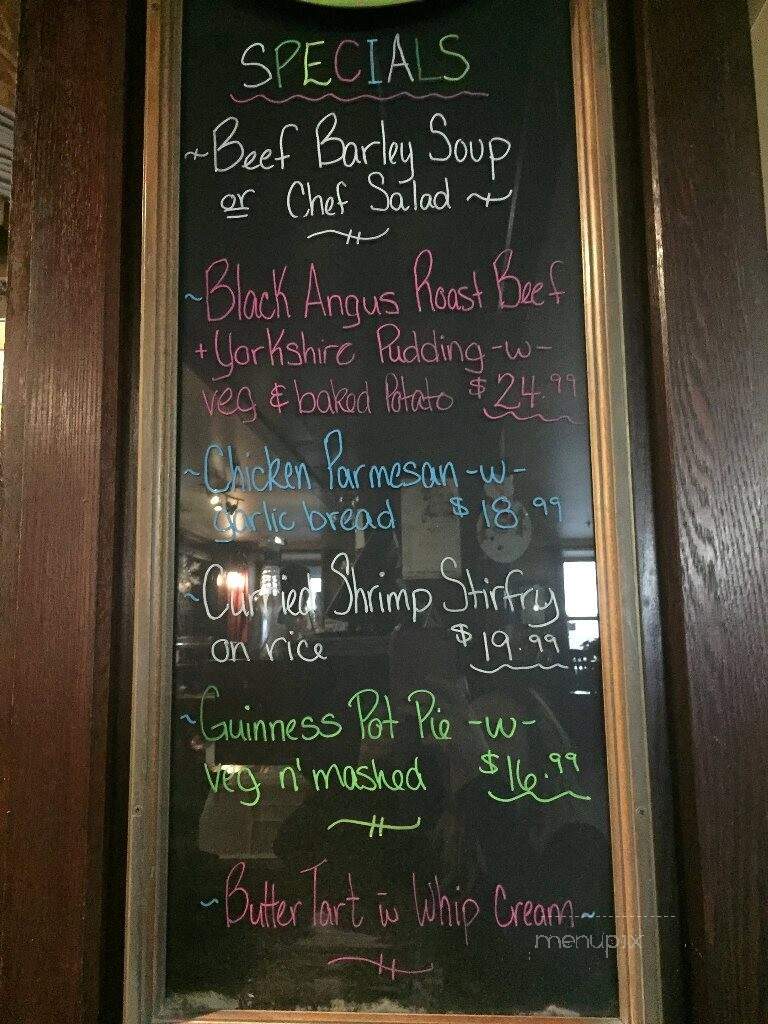 SPECIALS
~Beef Barley Soup
or Chef Salad ~
~Black Angus Roast Beef
+ Yorkshire Pudding -w-
veg & baked Potato $24.99
~Chicken Parmesan -w-
garlic bread $18.99
~Curried Shrimp Stirfry
on rice $19.99
~Guinness Pot Pie -w-
veg n' mashed $16.99
~Butter Tart w Whip Cream~
menupix